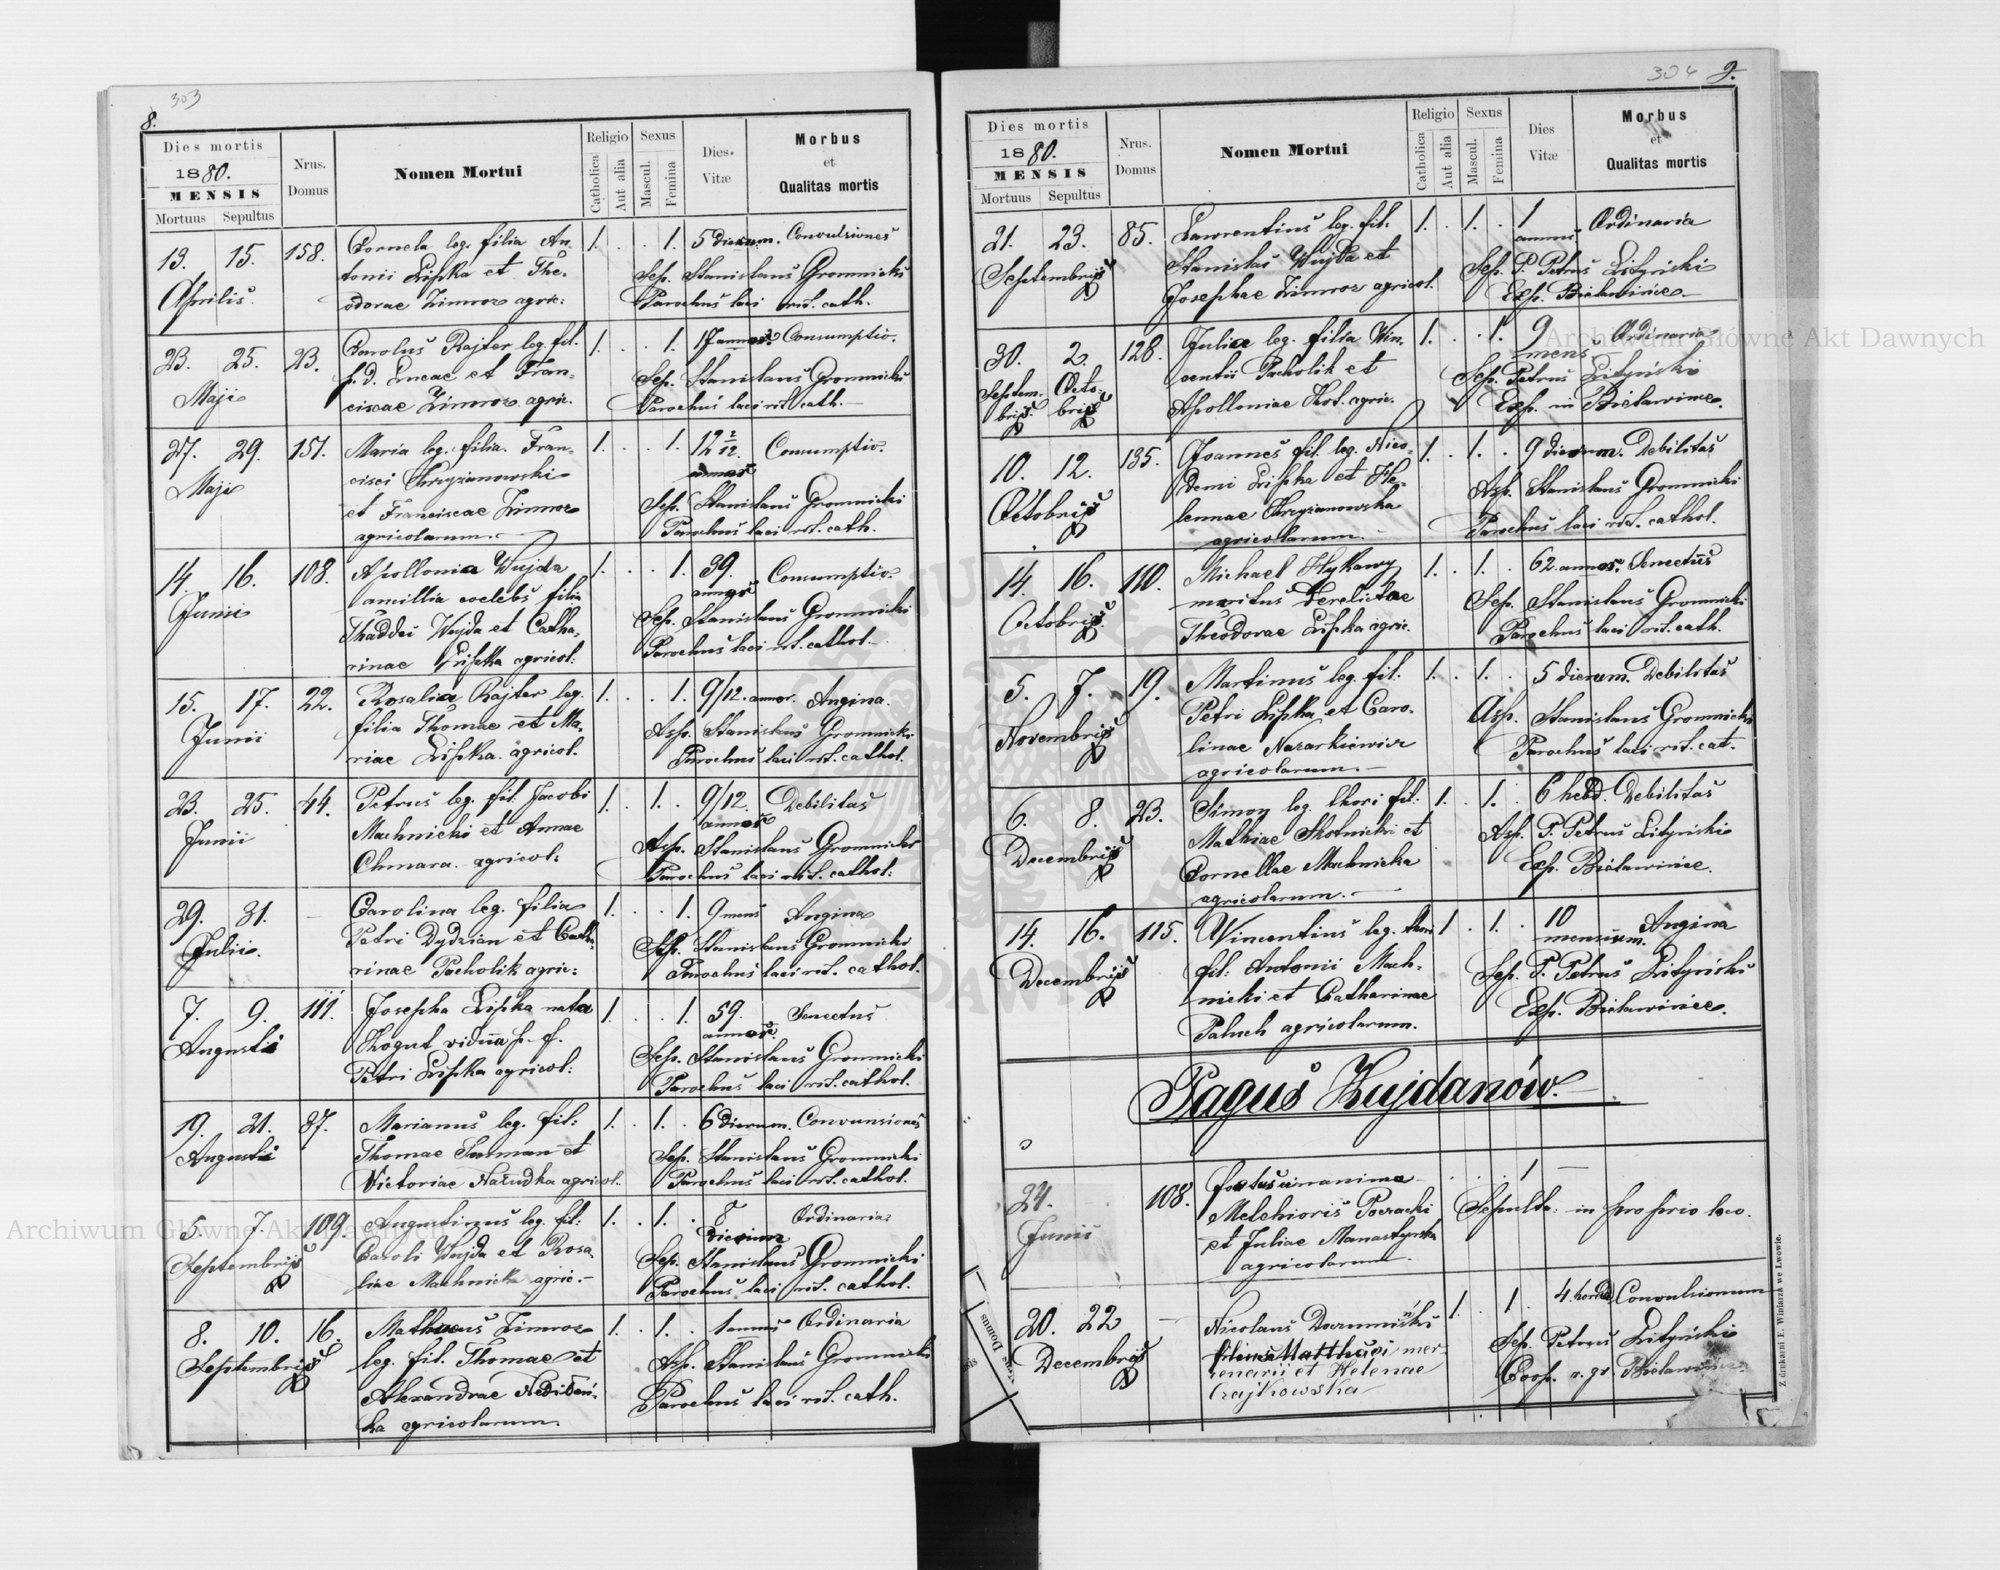 303
8.
Dies mortis
1880.
MENSIS
Mortuus Sepultus
Nrus.
Domus
Nomen Mortui
Religio
Catholica
Aut alia
Sexus
Mascul.
Femina
Dies
Vitæ
Morbus
et
Qualitas mortis
13. 15. 158. Cornela leg. filia An- 1. . . 1. 5 dierum. Convulsiones
Aprilis. tonii Lipka et The- Sep. Stanislaus Gromnicki
odorae Zimroz agric: Parochus loci rit. cath.
23. 25. 23. Carolus Rajter leg. fil. 1. . . 1. 17 annor. Consumptio.
Maji p. d. Lucae et Fran- Sep. Stanislaus Gromnicki
ciscae Zimroz agric. Parochus loci rit. cath.
27. 29. 151. Maria leg. filia Fran- 1. . . 1. 12 2/12 Consumptio.
Maji cisci Chrzzanowski annor
et Franciscae Zimroz Sep. Stanislaus Gromnicki
agricolarum. Parochus loci rit. cath.
14. 16. 108. Apollonia Wujda 1. . . 1. 39. Consumptio.
Junii ancillia coelebs filia annor
Thaddei Wujda et Catha- Sep. Stanislaus Gromnicki
rinae Lipka agricol: Parochus loci rit. cathol.
15. 17. 22. Rosalia Rajter leg. 1. . . 1. 9/12. annor. Angina.
Junii filia Thomae et Ma- Asp. Stanislaus Gromnicki
riae Lipka. agricol. Parochus loci rit. cathol.
23. 25. 44. Petrus leg. fil. Jacobi 1. . 1. . 9/12. Debilitas
Junii Machnicki et Annae annor
Chmara. agricol: Asp. Stanislaus Gromnicki
Parochus loci rit. cathol:
29. 31. – Carolina leg. filia 1. . . 1. 9 mens Angina
Julii. Petri Dydzien et Cath- Asp. Stanislaus Gromnicki
rinae Pacholik agric: Parochus loci rit. cathol.
7. 9. 111. Josepha Lipka nata 1. . . 1. 59. Senectus
Augusti Kogut vidua p. d. annor.
Petri Lipka agricol: Sep. Stanislaus Gromnicki
Parochus loci rit. cathol.
19. 21. 87. Marianus leg. fil: 1. . 1. . 6 dierum. Convunsiones
Augusti Thomae et Sep. Stanislaus Gromnicki
Victoriae Nazudka agricol. Parochus loci rit. cathol.
5. 7. 109. Augustinus leg. fil: 1. . 1. . 8 Ordinaria
Septembris Caroli Wujda et Rosa- dierum
liae Machnicka agric.– Sep. Stanislaus Gromnicki
Parochus loci rit. cathol.
8. 10. 16. Mathaeus Zimroz 1. . 1. . 1 annus Ordinaria
Septembris leg. fil. Thomae et Asp. Stanislaus Gromnicki
Alexandrae
ka agricolarum. Parochus loci rit. cath.
304 9.
Dies mortis
1880.
MENSIS
Mortuus Sepultus
Nrus.
Domus
Nomen Mortui
Religio
Catholica
Aut alia
Sexus
Mascul.
Femina
Dies
Vitæ
Morbus
et
Qualitas mortis
21. 23. 85. Laurentius leg. fil: 1. . 1. . 1 Ordinaria
Septembris Stanislai Wujda et annus
Josephae Zimroz agricol. Sep. P. Petrus Lityński
Exp. Bieławińce.
30. 2. 128. Julia leg. filia Vin- 1. . . 1. 9 Ordinaria
Septem- Octo- centii Pacholik et mens
bris bris Apolloniae Kot. agric. Sep. Petrus Lityński
Exp. in Bieławińce.
10. 12. 135. Joannes fil. leg. Nico- 1. . 1. . 9 dierum. Debilitas
Octobris demi Lipka et He- Asp. Stanislaus Gromnicki
lennae Chrzyzanowska Parochus loci rit. cathol.
agricolarum.
14. 16. 110. Michael Hykawy 1. . 1. . 62. annor. Senectus
Octobris. maritus derelictae Sep. Stanislaus Gromnicki
Theodorae Lipka agric. Parochus loci rit. cath.
5. 7. 19. Martinus leg. fil: 1. . 1. . 5 dierum. Debilitas
Novembris Petri Lipka et Caro- Asp. Stanislaus Gromnicki
linae Nazarkiewicz Parochus loci rit. cat.
agricolarum.–
6. 8. 23. Simon leg. thori fil: 1. . 1. . 6 hebd. Debilitas
Decembris Mathiae Skotnicki et Asp. P. Petrus Lityński
Cornellae Machnicka Exp. Bieławińce.
agricolarum.–
14. 16. 115. Wincentius leg. thori 1 . 1. . 10 Angina
Decembris fil: Antonii Mach- mensium.
nicki et Catharinae Sep. P. Petrus Lityński
Paluch agricolarum. Exp. Bieławińce.
Pagus Zujdanów.
24. 108. foetus inanima . . . 1 –
Junii Melchioris Poczacki Sepulta: in proprio loco.
et Juliae Monastyrska
agricolarum
20. 22 – Nicolaus 1. . 1 . 4. horas Convulsionum
Decembris filius Matthaei mer- Sep. Petrus Lityński
cenarii et Helenae Coop. r. gr. Bieławińce
Czajkowska
Domus
Z drukarni E. Winiarza we Lwowie.
Archiwum Główne Akt Dawnych
Archiwum Główne Akt Dawnych